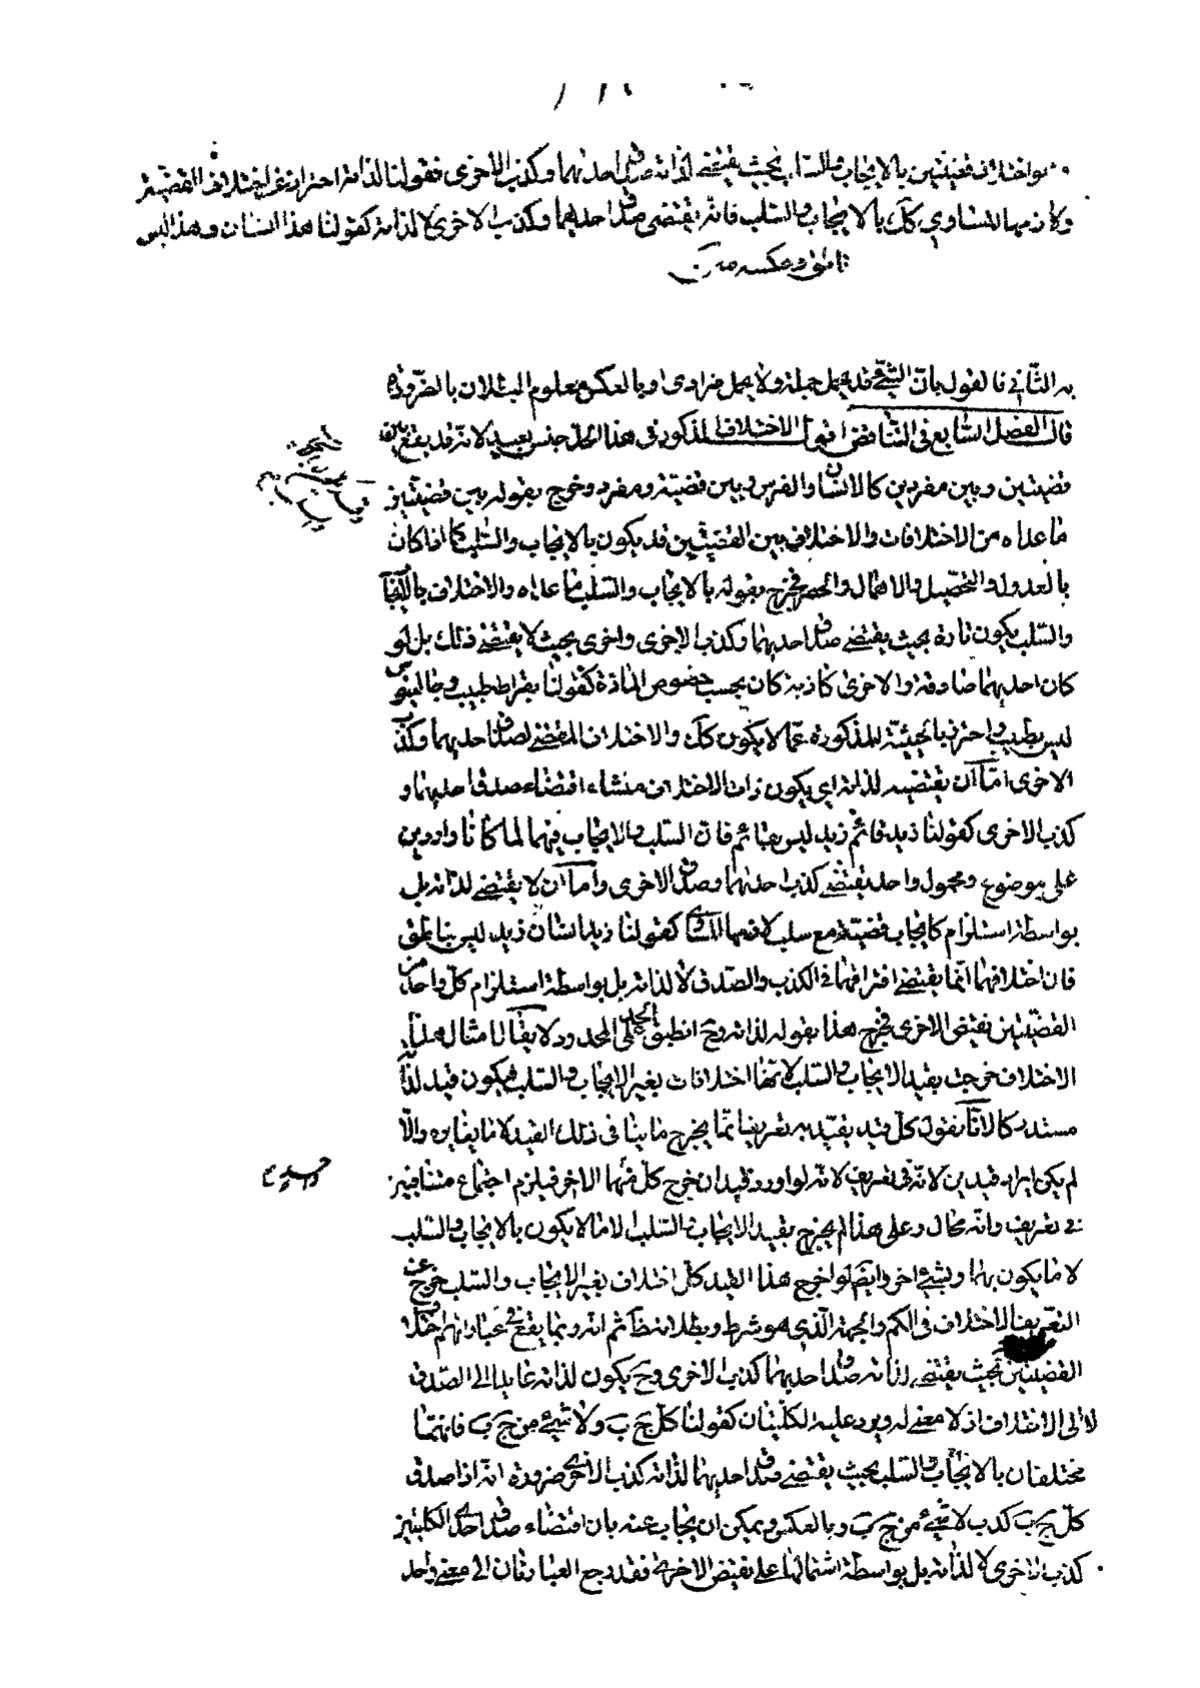 هو اختلاف قضيتين بالايجاب والسلب بحيث يقتضى لذاته صدق احديهما وكذب الاخرى فقولنا لذاته احتراز عن اختلاف القضية
ولازمها المساوي كك بالايجاب والسلب فانه يقتضى صدق احديهما وكذب الاخرى لا لذاته كقولنا هذا انسان وهذا ليس
ناطق وعكسه
به الثاني فالقول بان الشيخ قد يحمل جملة ولا يحمل فرادى او بالعكس معلوم البطلان بالضرورة
قال الفصل السابع فى التناقض اقول الاختلاف المذكور فى هذا الحد جنس بعيد لانه قد يقع بين
قضيتين وبين مفردين كالانسان والفرس وبين قضية ومفرد وخرج بقوله بين قضيتين
ما عداه من الاختلافات والاختلاف بين القضيتين قد يكون بالايجاب والسلب كما اذا كان
بالعدول والتحصيل والاهمال والحصر فخرج بقوله بالايجاب والسلب ما عداه والاختلاف بالايجاب
والسلب يكون تارة بحيث يقتضى صدق احديهما وكذب الاخرى واخرى بحيث لا يقتضى ذلك بل لو
كان احديهما صادقة والاخرى كاذبة كان بحسب خصوص المادة كقولنا بقراط طبيب وجالينوس
ليس بطبيب واحترز بالحيثية المذكورة عما لا يكون كك والاختلاف المقتضى لصدق احديهما وكذب
الاخرى اما ان يقتضيه لذاته اي يكون ذات الاختلاف منشاء اقتضاء صدق احديهما و
كذب الاخرى كقولنا زيد قائم زيد ليس بقائم فان السلب والايجاب فيهما لما كانا واردين
على موضوع ومحمول واحد يقتضى كذب احديهما وصدق الاخرى واما ان لا يقتضى لذاته بل
بواسطة استلزام كايجاب قضية مع سلب لازمها المساوى كقولنا زيد انسان زيد ليس بناطق
فان اختلافهما انما يقتضى افتراقهما فى الكذب والصدق لا لذاته بل بواسطة استلزام كل واحدة من
القضيتين نقيض الاخرى فخرج هذا بقوله لذاته وح انطبق الحد على المحدود لا يقال امثال هذا
الاختلاف خرجت بقيد الايجاب والسلب لانها اختلافات بغير الايجاب والسلب فيكون قيد لذاته
مستدركا لانا نقول كل قيد يقيد به تعريف انما يخرج ما ينافى ذلك القيد لا ما يغايره والا
لم يكن ايراد قيدين لانه فى تعريف لانه لو اورد قيدان خرج كل منهما الاخر فيلزم اجتماع متنافيين
فى تعريف وانه محال وعلى هذا لم يخرج بقيد الايجاب والسلب الا ما لا يكون بالايجاب والسلب
لا ما يكون بهما وبشئ اخر وايضا لو اخرج هذا القيد كل اختلاف بغير الايجاب والسلب خرج عن
التعريف الاختلاف فى الكم والجهة الذي هو شرط وبطلانه ظاهر ثم انه ربما يقع فى عباراتهم اختلاف
القضيتين بحيث يقتضى لذاته صدق احديهما كذب الاخرى وح يكون لذاته عايدا الى الصدق
لا الى الاختلاف اذ لا معنى له ويرد عليه الكليتان كقولنا كل ج ب ولا شئ من ج ب فانهما
مختلفان بالايجاب والسلب بحيث يقتضى صدق احديهما لذاته كذب الاخرى ضرورة انه اذا صدق
كل ج ب كذب لا شئ من ج ب وبالعكس ويمكن ان يجاب عنه بان اقتضاء صدق احدى الكليتين
كذب الاخرى لا لذاته بل بواسطة اشتمالها على نقيض الاخرى فقد رجع العبارتان الى معنى واحد